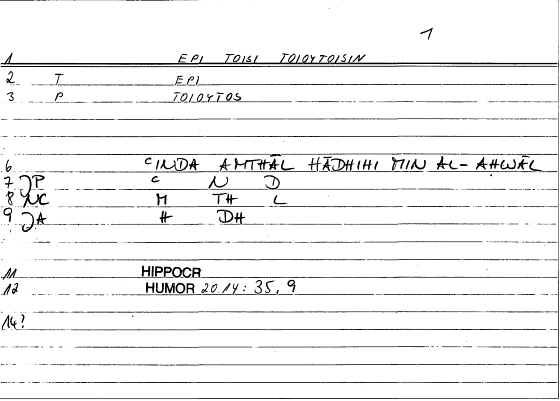 1
1 EPI TOISI TOIOYTOISIN
2 T EPI
3 P TOIOYTOS
6 ᶜINDA AMTHĀL HĀDHIHI MIN AL-AHWĀL
7 JP ᶜ N D
8 NC M TH L
9 JA H DH
11 HIPPOCR
12 HUMOR 20.14: 35,9
14?